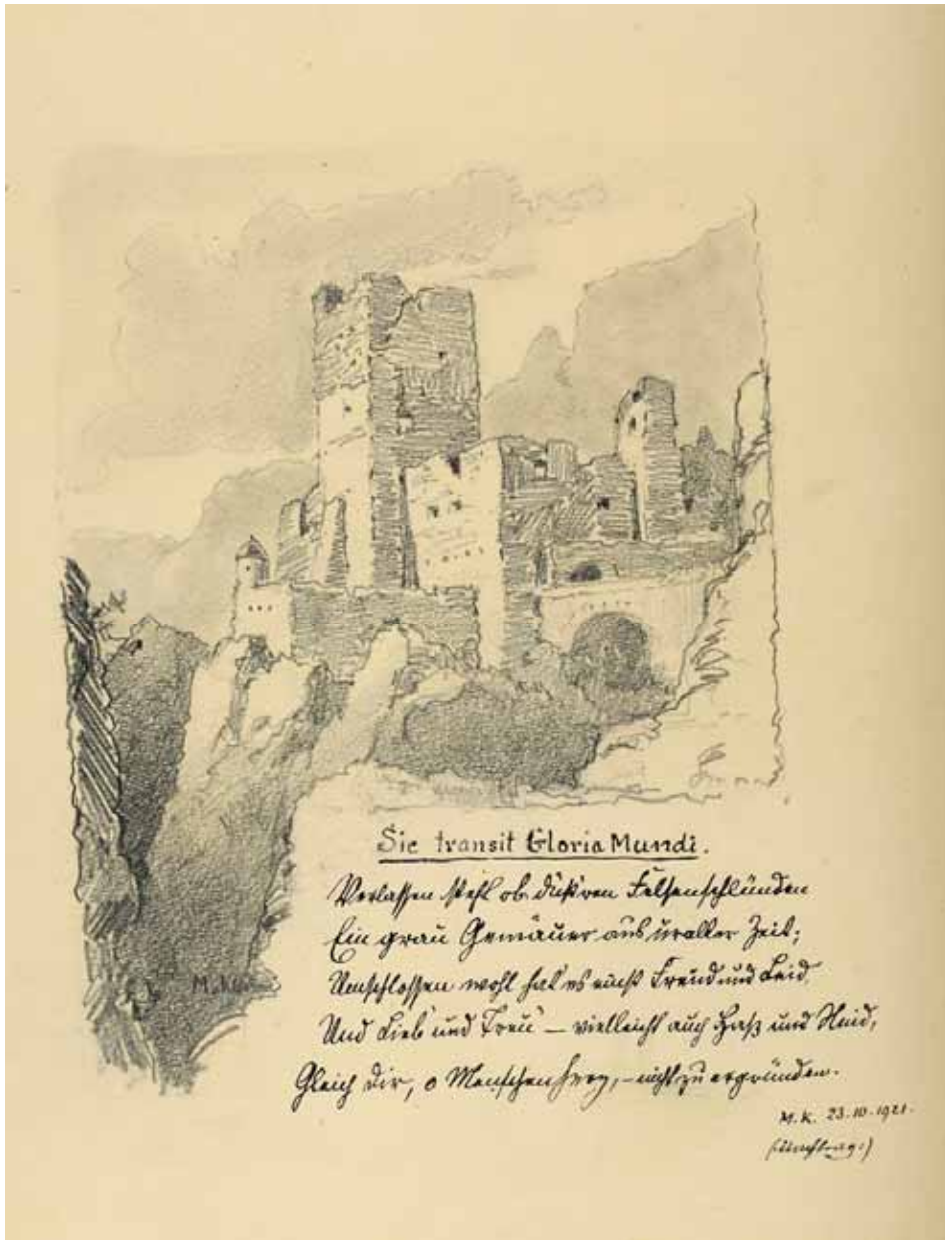 Sic transit Gloria Mundi.
Verlassen steht ob düst'ren Felsenschlünden
Ein grau Gemäuer aus uralter Zeit;
Umschlossen wohl hat es einst Freud und Leid,
Und Lieb' und Treu' — vielleicht auch Haß und Neid,
Gleich Dir, o Menschenherz, – nicht zu ergründen.
M.K. 23.10.1921.